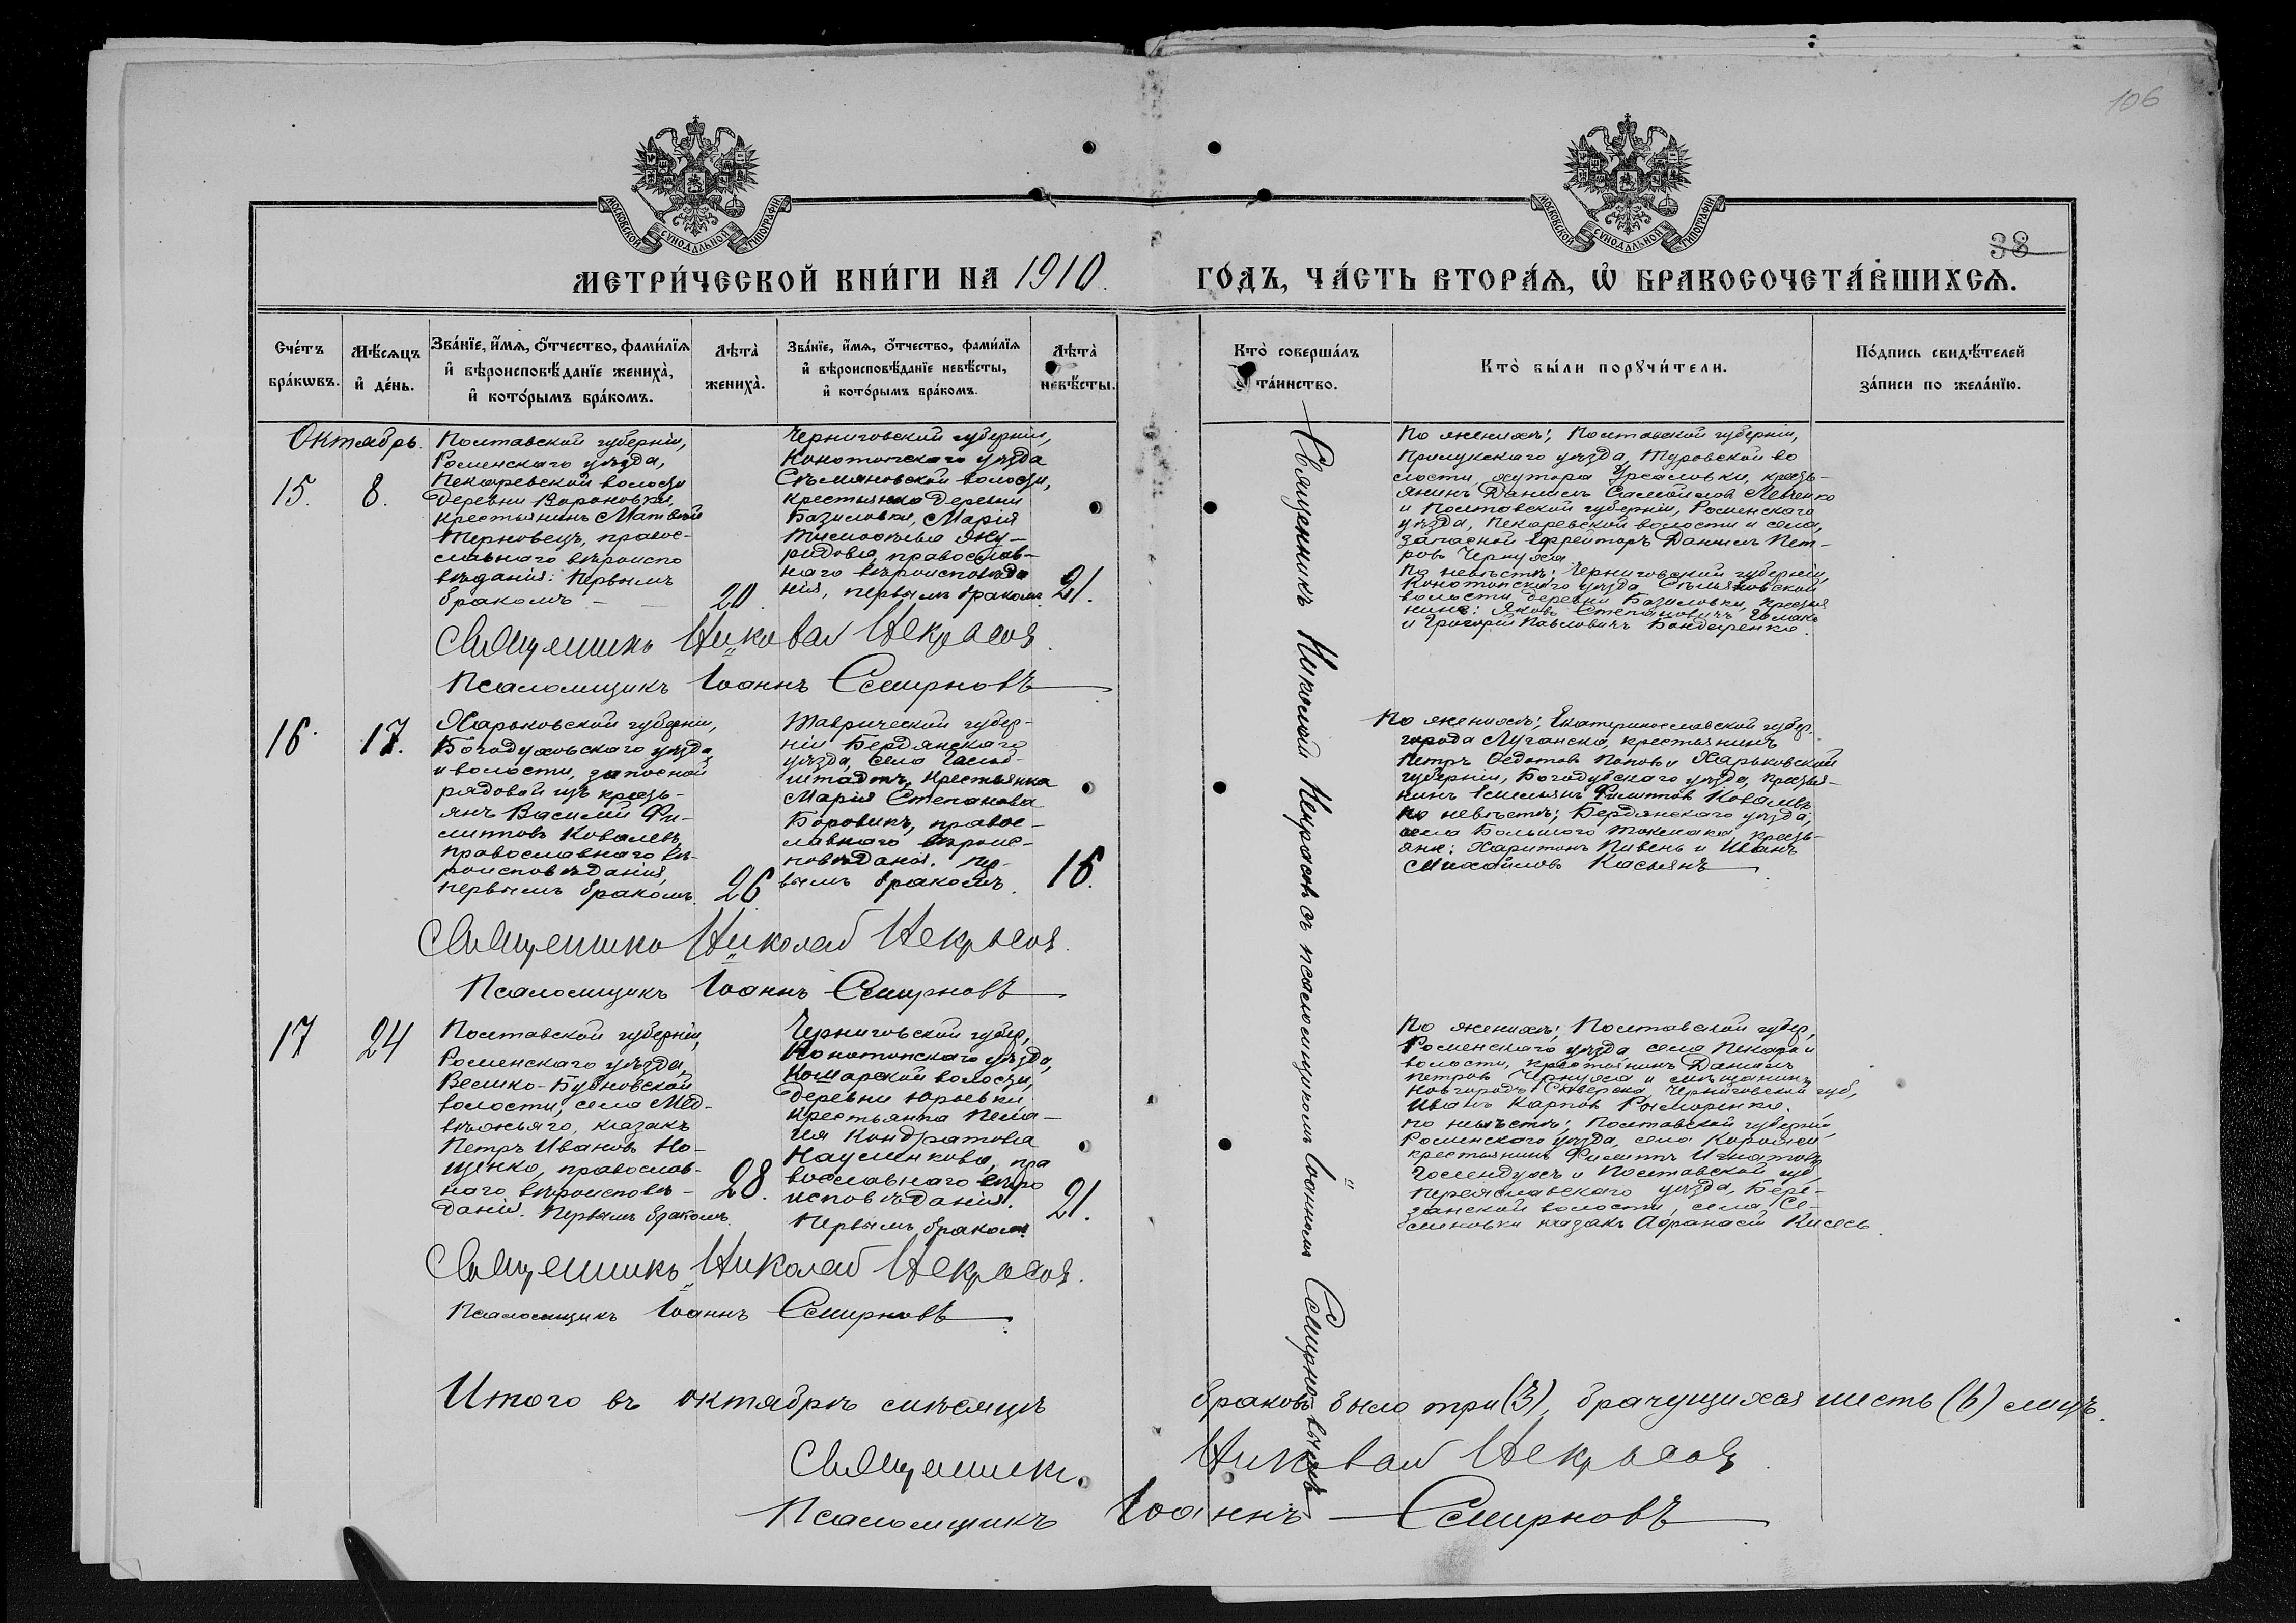 106
МОСКОВСКОЙ СѴНОДАЛЬНОЙ ТИПОГРАФІИ
МОСКОВСКОЙ СѴНОДАЛЬНОЙ ТИПОГРАФІИ
38
МЕТРИ́ЧЕСКОЙ КНИ́ГИ НА 1910. ГО́ДЪ, ЧА́СТЬ ВТОРА́Ѧ, Ѡ҆ БРАКОСОЧЕТА́ВШИХСѦ.
Сче́тъ
бра́кѡвъ.
Мѣ́сѧцъ
и҆ де́нь.
Зва́нїе, и҆́мѧ, ѻ҆́тчество, фами́лїѧ
и҆ вѣроисповѣ́данїе жениха̀,
и҆ кото́рымъ бра́комъ.
Лѣта̀
жениха̀.
Зва́нїе, и҆́мѧ, ѻ҆́тчество, фами́лїѧ
и҆ вѣроисповѣ́данїе невѣ́сты,
и҆ кото́рымъ бра́комъ.
Лѣта̀
невѣ́сты.
Кто̀ соверша́лъ
та́инство.
Кто̀ бы́ли порꙋчи́тели.
По́дпись свидѣ́телей
за́писи по жела́нїю.
Октябрь.
15.
8.
Полтавской губерніи,
Роменскаго уѣзда,
Пекаревской волости
деревни Вороновки,
крестьянинъ Матвѣй
Терновецъ, правос-
лавнаго вѣроиспо
вѣданія: Первымъ
бракомъ —
20.
Черниговской губерніи,
Конотопскаго уѣзда
Стъмяновской волости,
крестьянка деревни
Базиловки, Марія
Тимоѳѣева Яку-
ридова, православ-
наго вѣроисповѣда
нія, первымъ бракомъ.
21.
По женихѣ; Полтавской губерніи,
Прилукскаго уѣзда, Туровской во
лости, хутора Урсаловки, кресть-
янинъ Даніилъ Самойловъ Левченко
и Полтавской губерніи, Роменскаго
уѣзда, Пекаревской волости и села,
запасной Ефрейторъ Даніилъ Пет-
ровъ Чернуха
По невѣстѣ; Черниговской губерніи,
Конотопскаго уѣзда
волости деревни Базиловки, крестья
нине: Яковъ Степановичъ
и Григорій Павловичъ Бондаренко.
Священникъ Николай Некрасовъ
Псаломщикъ Іоаннъ Смирновъ
16.
17.
Харьковской губерніи,
Богодуховскаго уѣзда
и волости, запасной
рядовой изъ кресть-
янъ Василій Фи-
липповъ Ковалевъ,
православнаго вѣ-
роисповѣданія,
первымъ бракомъ.
26
Таврической губер-
ніи Бердянскаго
уѣзда, села Гальб-
штадтъ, крестьянка
Марія Степанова
Боровикъ, правос-
лавнаго вѣроис-
повѣданія. пер-
вымъ бракомъ.
16.
По женихѣ; Екатеринославской губер.
города Луганска, крестьянинъ
Петръ Ѳедотовъ Поповъ и Харьковской
губерніи, Богодувскаго уѣзда, крестья-
нинъ Емельянъ Филиповъ Ковалевъ
По невѣстѣ; Бердянскаго уѣзда,
села Большого Токмака, кресть-
яне: Харитонъ Пивень и Иванъ
Михайловъ Касьянъ
Священникъ Николай Некрасовъ.
Псаломщикъ Іоаннъ Смирновъ
17
24
Полтавской губерніи,
Роменскаго уѣзда,
Велико-Бубновской
волости, села Мед-
вѣжьяго, казакъ
Петръ Ивановъ Но-
щенко, православ-
наго вѣроисповѣ-
данія. Первымъ бракомъ.
28.
Черниговской губер,
Конотопскаго уѣзда,
Комарской волости,
деревни Юрьевки
крестьянка Пела-
гія Кондратова
Науменкова, пра
вославнаго вѣро
исповѣданія.
Первымъ бракомъ.
21.
По женихѣ; Полтавской губер,
Роменскаго уѣзда села Пекари и
волости, крестьянинъ Даніилъ
Петровъ Чернуха и мѣщанинъ
Новгородъ Сѣверска Черниговской губ,
Иванъ Карповъ
По невѣстѣ; Полтавской губерніи,
Роменскаго уѣзда, села
крестьянинъ Филиппъ Игнатовъ
Гомендухъ и Полтавской губ
Переяславскаго уѣзда, Бере-
занской волости, села Се-
меновки казакъ Афанасій Кисель.
Священникъ Николай Некрасовъ.
Псаломщикъ Іоаннъ Смирновъ
Священникъ Николай Некрасовъ съ псаломщикомъ Іоанномъ Смирновымъ
Итого въ октябрѣ мѣсяцѣ браковъ было три (3), брачущихся шесть (6) лицъ.
Священникъ Николай Некрасовъ.
Псаломщикъ Іоаннъ — Смирновъ